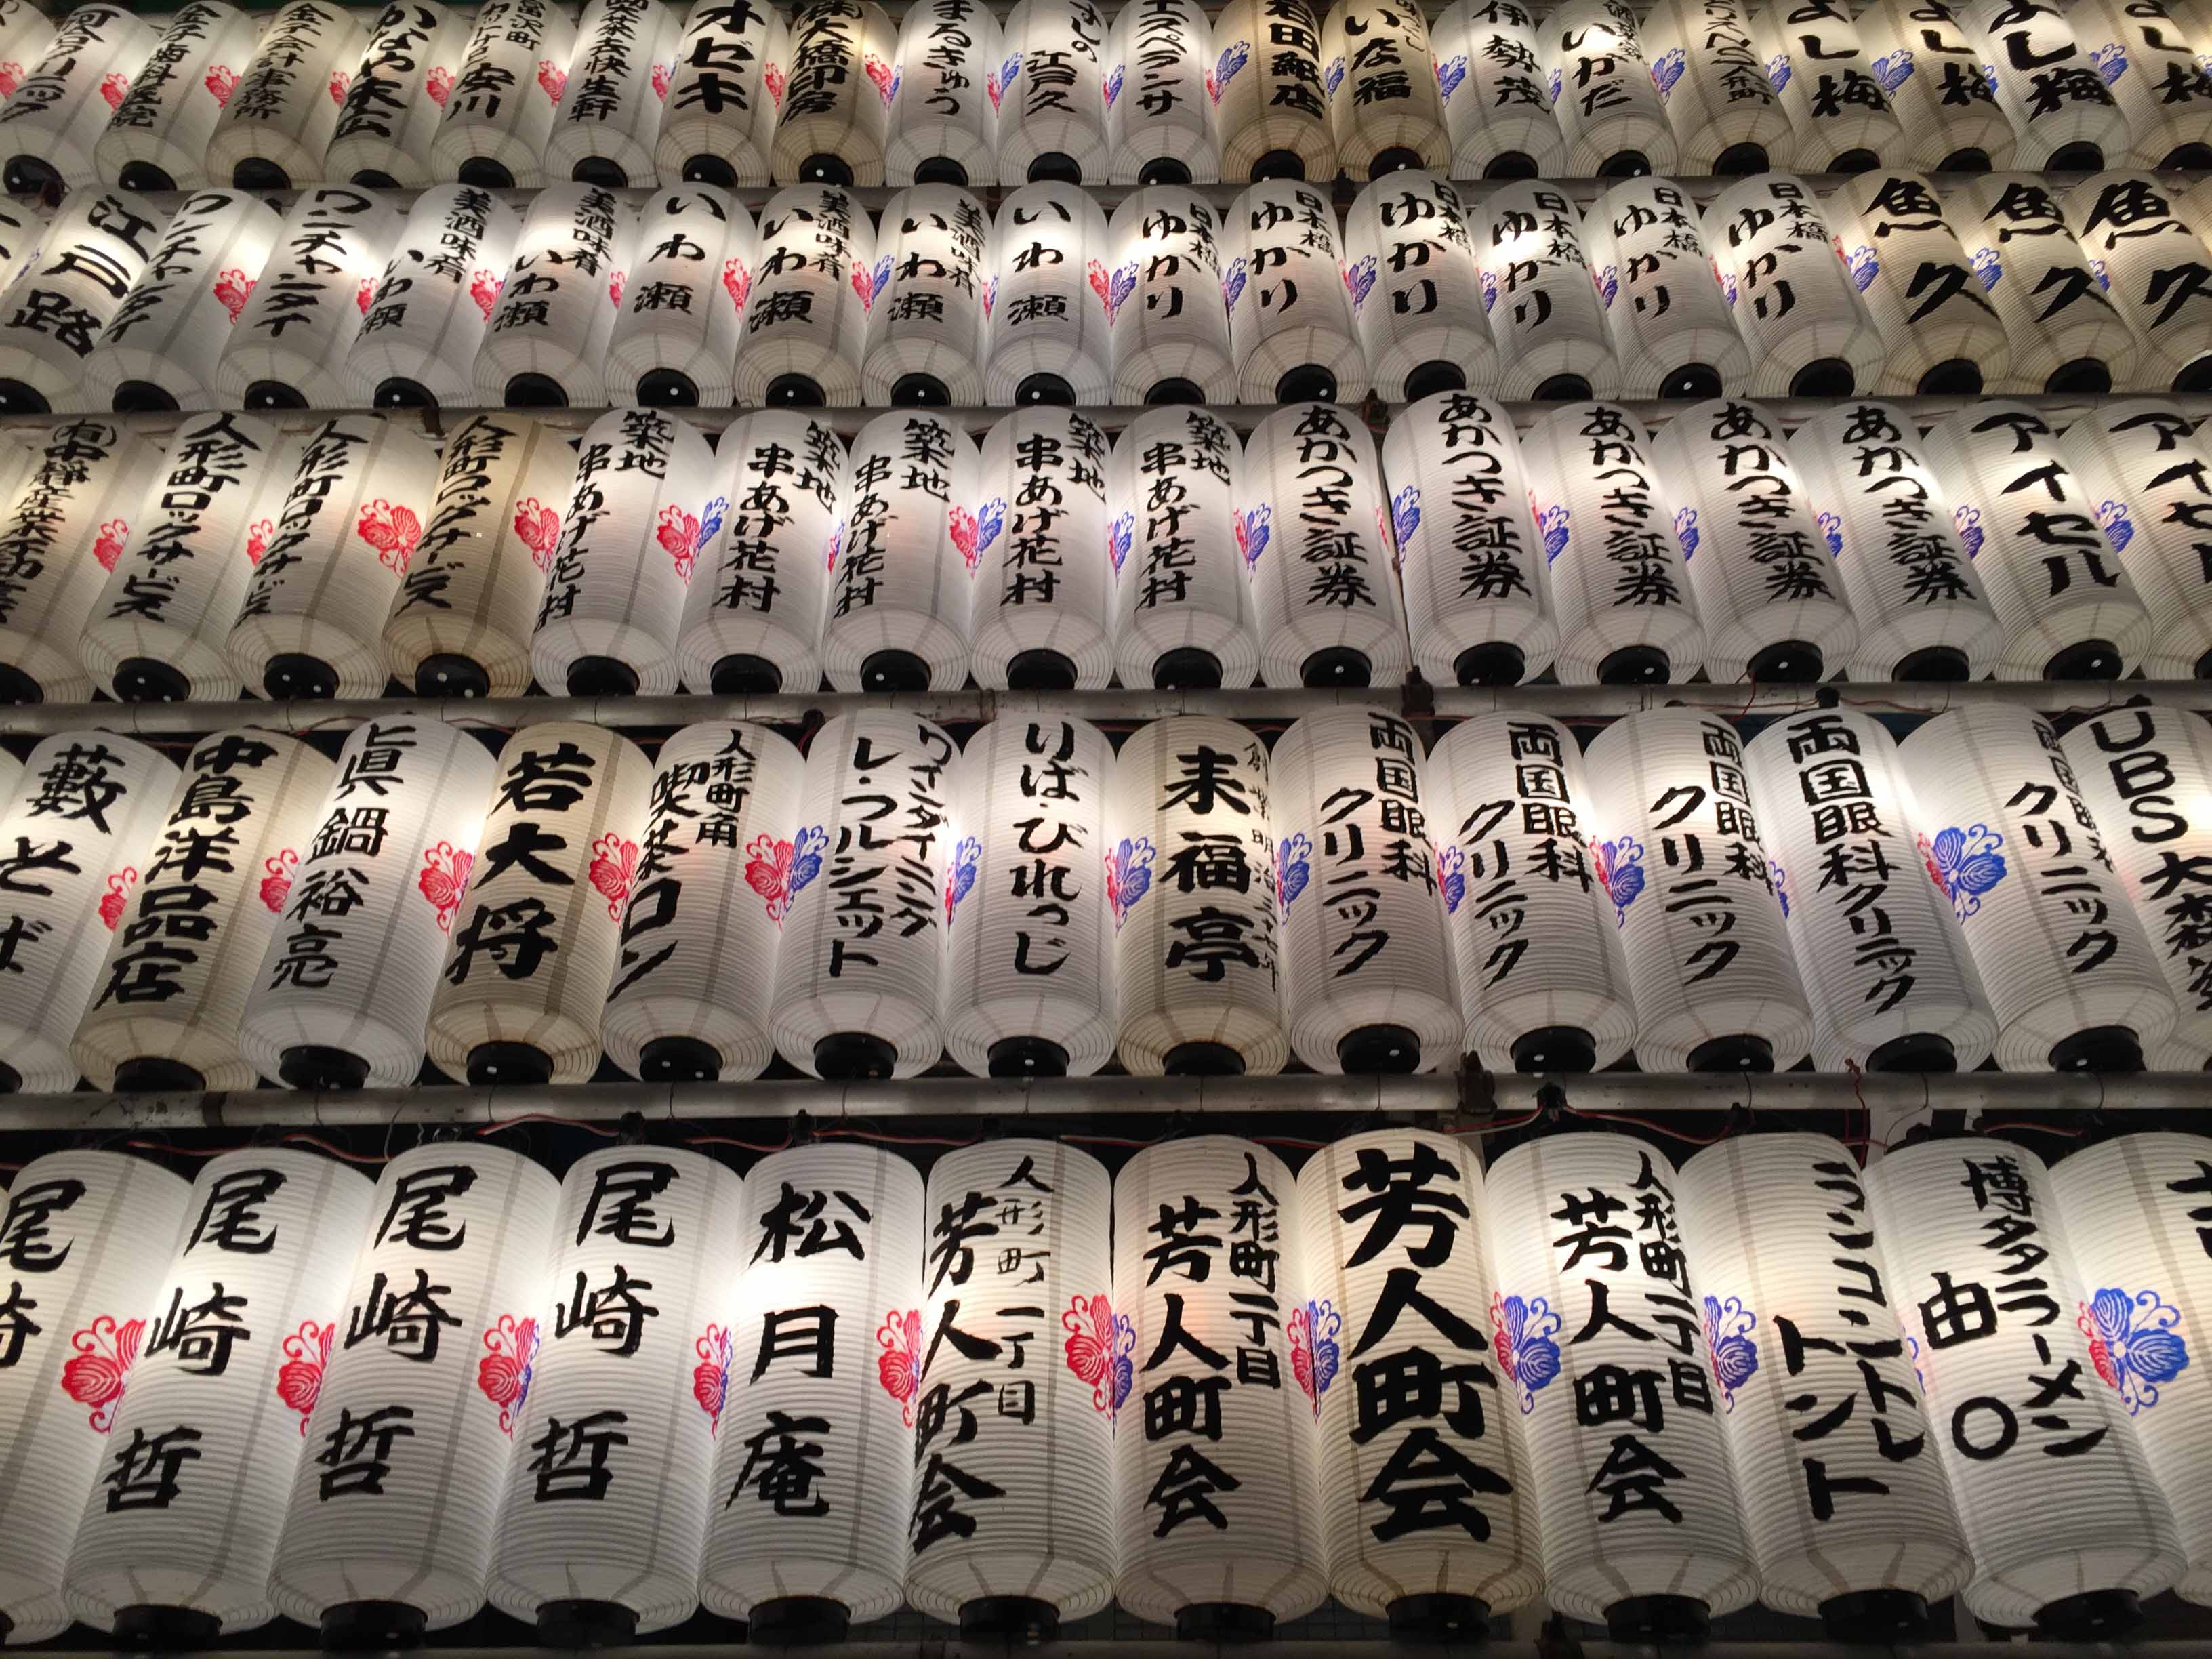 金子歯科医院
金子会計事務所
富沢町
安川
喫茶去快生軒
オゼキ
㈱大橋印房
まるきゅう
よしの
江戸久
エスペランサ
岩田紙店
いな福
伊勢茂
いかだ
よし梅
よし梅
よし梅
よし梅
江戸路
ワンチャンタイ
ワンチャンタイ
美酒味肴
いわ瀬
美酒味肴
いわ瀬
いわ瀬
美酒味肴
いわ瀬
美酒味肴
いわ瀬
いわ瀬
日本橋
ゆかり
日本橋
ゆかり
日本橋
ゆかり
日本橋
ゆかり
日本橋
ゆかり
日本橋
ゆかり
魚久
魚久
魚久
人形町ロックサービス
人形町ロックサービス
人形町ロックサービス
築地
串あげ花村
築地
串あげ花村
築地
串あげ花村
築地
串あげ花村
築地
串あげ花村
あかつき証券
あかつき証券
あかつき証券
あかつき証券
あかつき証券
アイセル
アイセル
藪そば
中島洋品店
眞鍋裕亮
若大将
人形町角
喫茶ロン
ワインダイニング
レ・フルシェット
りば・びれっじ
来福亭
両国眼科
クリニック
両国眼科
クリニック
両国眼科
クリニック
両国眼科クリニック
両国眼科
クリニック
UBS
尾崎
尾崎哲
尾崎哲
尾崎哲
松月庵
人形町一丁目
芳人町会
人形町一丁目
芳人町会
芳人町会
人形町一丁目
芳人町会
ランコントレ
トント
博多ラーメン
由〇